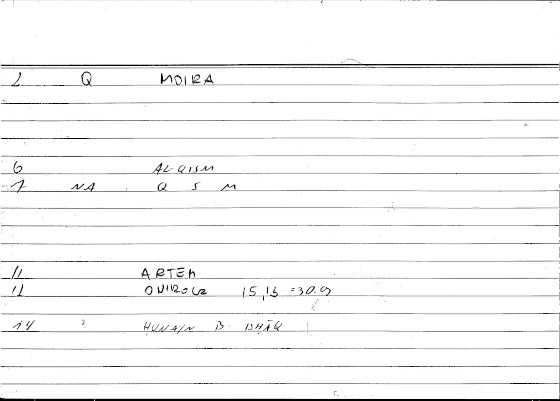 2 Q MOIRA
6 AL-QISM
7 NA Q S M
11 ARTEM
12 ONIROCR 15,13 =30.9
14 ? ḤUNAIN B. ISḤĀQ